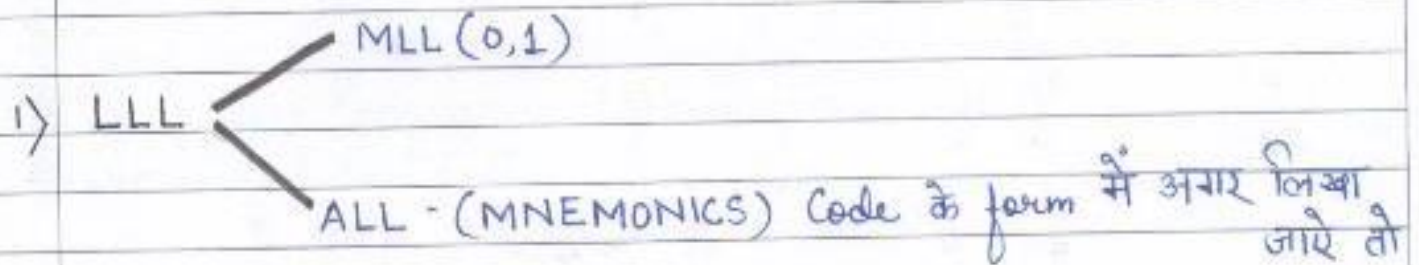 MLL (0,1)
1) LLL
ALL - (MNEMONICS) Code के form में अगर लिखा
जाऐ तो